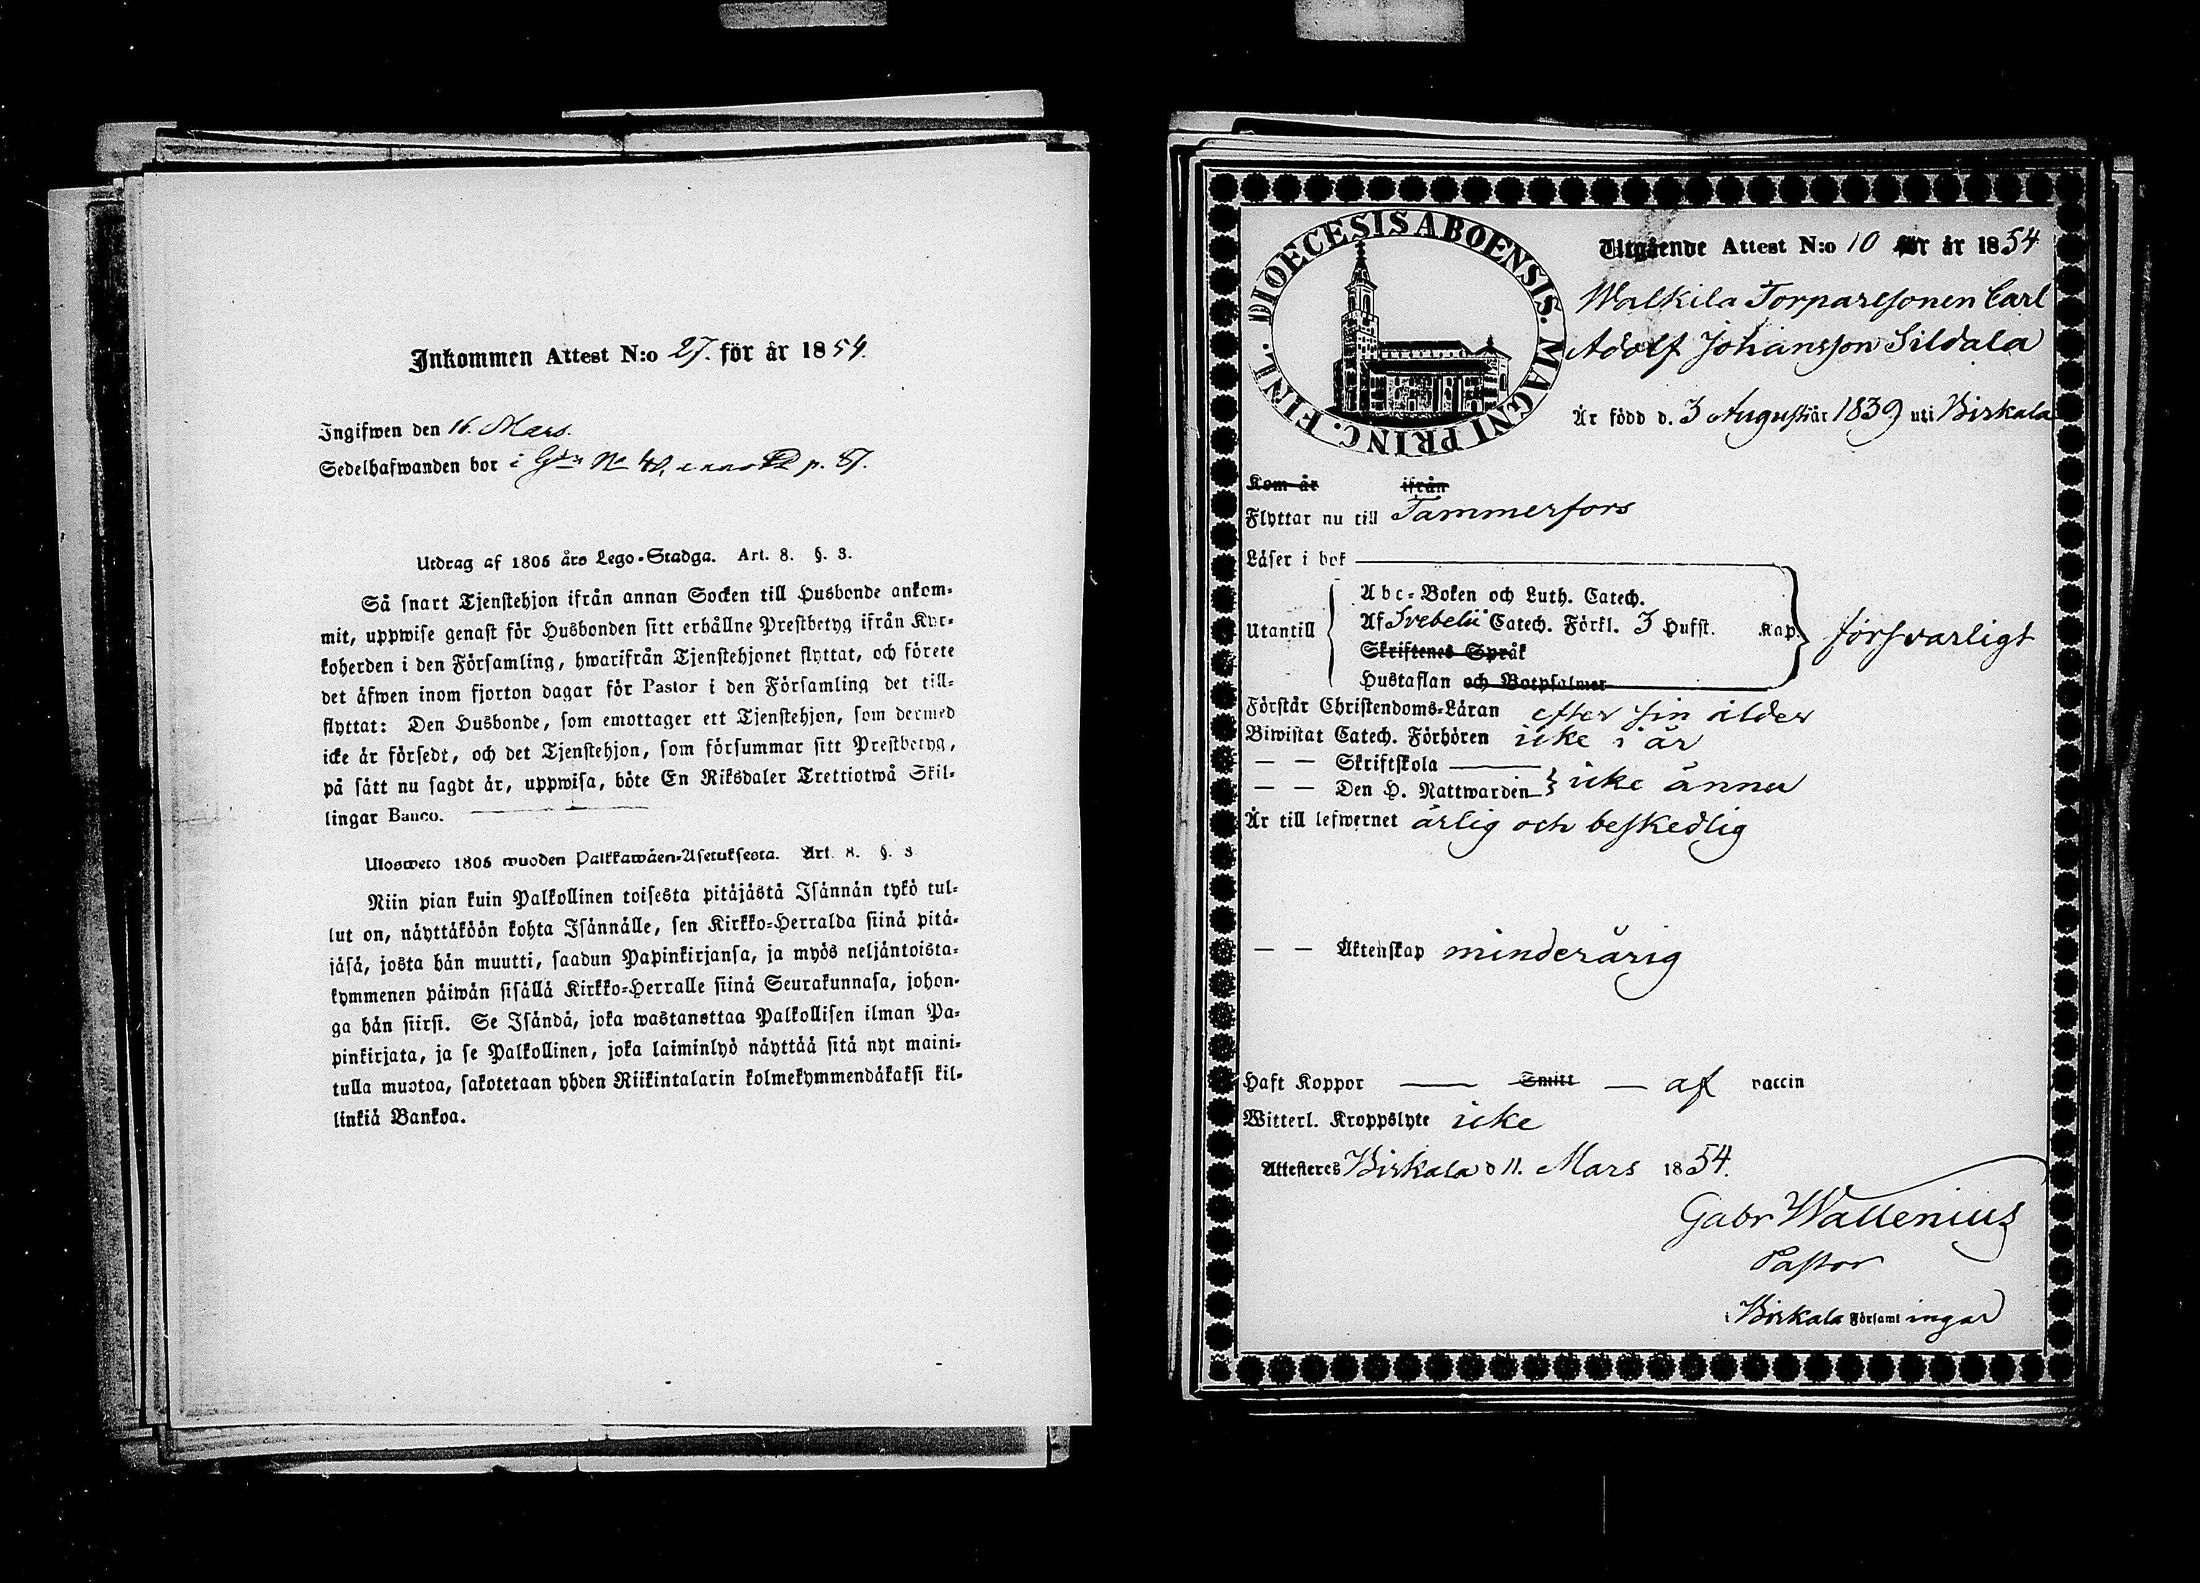 Inkommen Attest N:o 27. för år 1854.
Ingifwen den 16. Mars.
Sedelhafwanden bor i Gdn No 40, p. 87.
Utdrag af 1805 års Lego-Stadga. Art. 8. §. 3.
Så snart Tjenstehjon ifrån annan Socken till Husbonde ankom-
mit, uppwise genast för Husbonden sitt erhållne Prestbetyg ifrån Kyr-
koherden i den Församling, hwarifrån Tjenstehjonet flyttat, och förete
det äfwen inom fjorton dagar för Pastor i den Församling det till-
flyttat: Den Husbonde, som emottager ett Tjenstehjon, som dermed
icke är försedt, och det Tjenstehjon, som försummar sitt Prestbetyg,
på sätt nu sagdt är, uppwisa, böte En Riksdaler Trettiotwå Skil-
lingar Banco.
Ulosweto 1805 wuoden Palkkawäen-Asetuksesta. Art. 8. §. 3
Niin pian kuin Palkollinen toisesta pitäjästä Isännän tykö tul-
lut on, näyttäköön kohta Isännälle, sen Kirkko-Herralda siinä pitä-
jäsä, josta hän muutti, saadun Papinkirjansa, ja myös neljäntoista-
kymmenen päiwän sisällä Kirkko-Herralle siinä Seurakunnasa, johon-
ga hän siirsi. Se Isändä, joka wastanottaa Palkollisen ilman Pa-
pinkirjata, ja se Palkollinen, joka laiminlyö näyttää sitä nyt maini-
tulla muotoa, sakotetaan yhden Riikintalarin kolmekymmendäkaksi kil-
linkiä Bankoa.
DIOECESIS ABOENSIS. MAGNI PRINC. FINL.
Utgående Attest N:o 10 för år 1854
Walkila Torparesonen Carl
Adolf Johansson Sildala
Är född d. 3 Augusti år 1839 uti Birkala
Kom år ifrån
Flyttar nu till Tammerfors
Läser i bok
Abc-Boken och Luth. Catech.
Utantill Af Svebelii Catech. Förkl. 3 Hufst. Kap. försvarligt
Skriftenes Språk
Hustaflan och Botpsalmer
Förstår Christendoms-Läran efter sin ålder
Biwistat Catech. Förhören icke i år
— — Skriftskola
— — Den H. Nattwarden icke ännu
Är till lefwernet ärlig och beskedlig
— — Äktenskap minderårig
Haft Koppor — Smitt — af vaccin
Witterl. Kroppslyte icke
Attesteres Birkala d 11. Mars 1854.
Gabr Wallenius
Pastor
i Birkala Församlingar